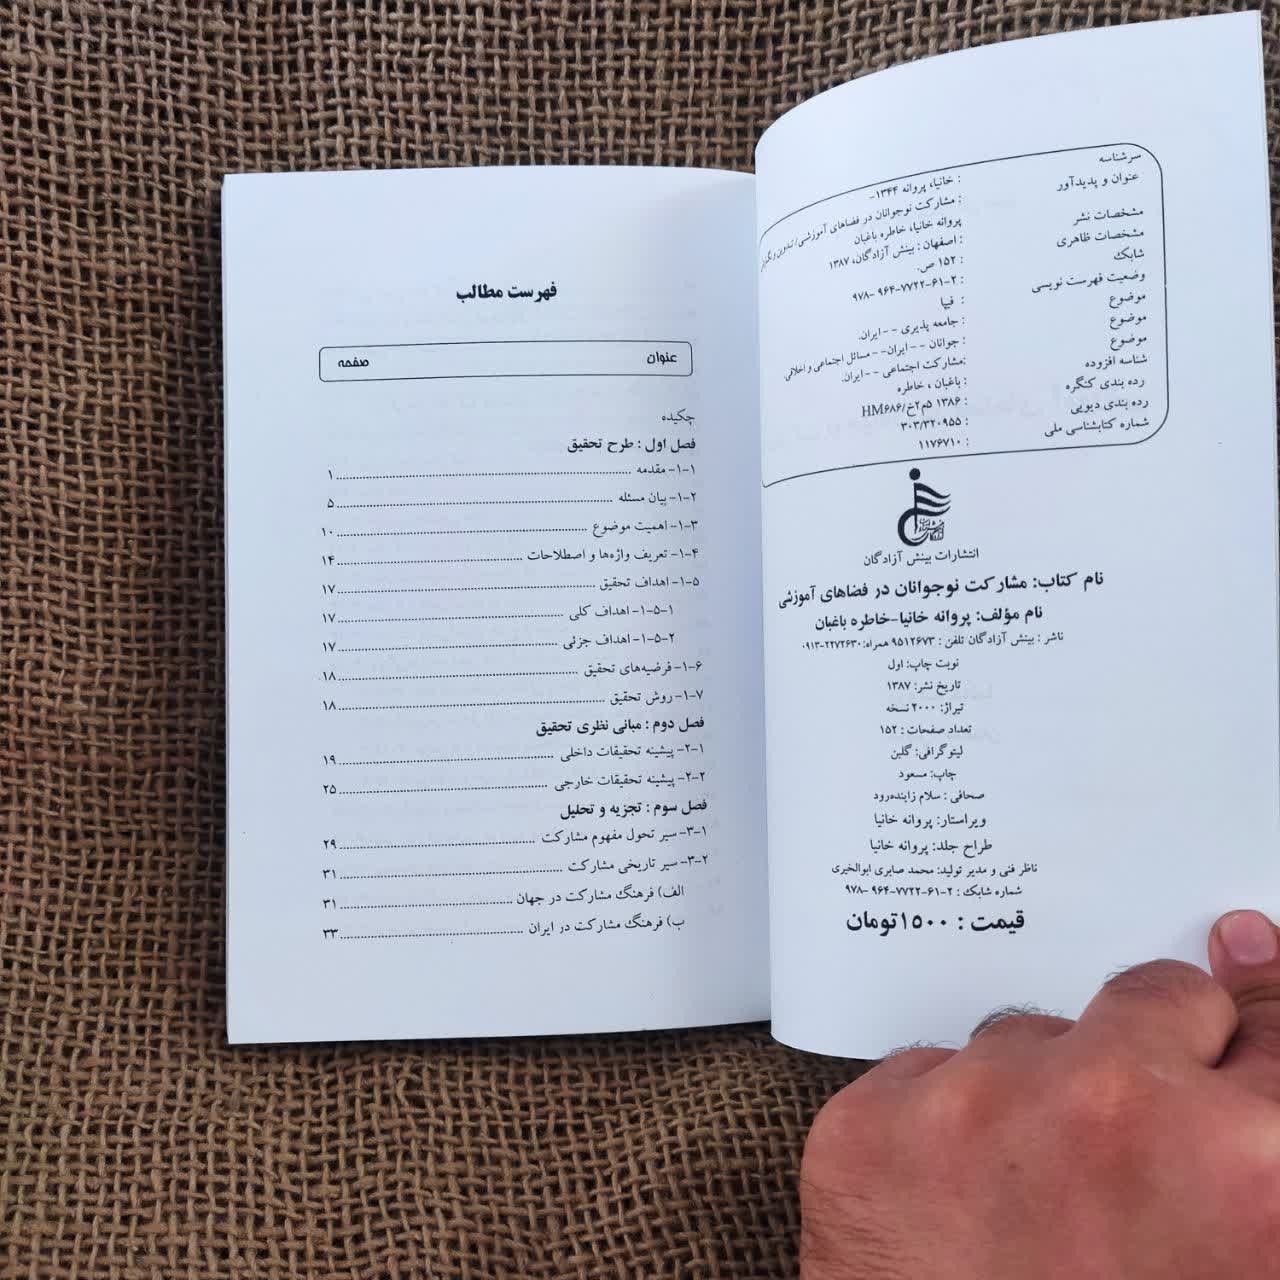 سرشناسه : خانیا، پروانه ۱۳۴۴-
عنوان و پدیدآور : مشارکت نوجوانان در فضاهای آموزشی/تدوین و
پروانه خانیا، خاطره باغبان
مشخصات نشر : اصفهان : بینش آزادگان، ۱۳۸۷
مشخصات ظاهری : ۱۵۲ ص.
شابک : ۲-۶۱-۷۷۲۲-۹۶۴ -۹۷۸
وضعیت فهرست نویسی : فیپا
موضوع : جامعه پذیری - - ایران.
موضوع : جوانان - - ایران- - مسائل اجتماعی و اخلاقی.
موضوع :مشارکت اجتماعی - - ایران.
شناسه افزوده : باغبان ، خاطره
رده بندی کنگره : ۱۳۸۶ ۵م۲خ/HM۶۸۶
رده بندی دیویی : ۳۰۳/۳۲۰۹۵۵
شماره کتابشناسی ملی : ۱۱۷۶۷۱۰
انتشارات بینش آزادگان
نام کتاب: مشارکت نوجوانان در فضاهای آموزشی
نام مؤلف: پروانه خانیا-خاطره باغبان
ناشر : بینش آزادگان تلفن : ۹۵۱۲۶۷۳ همراه: ۲۲۷۲۶۳۰-۰۹۱۳
نوبت چاپ: اول
تاریخ نشر: ۱۳۸۷
تیراژ: ۲۰۰۰ نسخه
تعداد صفحات : ۱۵۲
لیتوگرافی: گلبن
چاپ: مسعود
صحافی : سلام زاینده‌رود
ویراستار: پروانه خانیا
طراح جلد: پروانه خانیا
ناظر فنی و مدیر تولید: محمد صابری ابوالخیری
شماره شابک : ۲-۶۱-۷۷۲۲-۹۶۴ -۹۷۸
قیمت : ۱۵۰۰تومان
فهرست مطالب
عنوان صفحه
چکیده
فصل اول : طرح تحقیق
۱-۱- مقدمه ........ ۱
۱-۲- بیان مسئله ........ ۵
۱-۳- اهمیت موضوع ........ ۱۰
۱-۴- تعریف واژه‌ها و اصطلاحات ........ ۱۴
۱-۵- اهداف تحقیق ........ ۱۷
۱-۵-۱- اهداف کلی ........ ۱۷
۱-۵-۲- اهداف جزئی ........ ۱۷
۱-۶- فرضیه‌های تحقیق ........ ۱۸
۱-۷- روش تحقیق ........ ۱۸
فصل دوم : مبانی نظری تحقیق
۲-۱- پیشینه تحقیقات داخلی ........ ۱۹
۲-۲- پیشینه تحقیقات خارجی ........ ۲۵
فصل سوم : تجزیه و تحلیل
۳-۱- سیر تحول مفهوم مشارکت ........ ۲۹
۳-۲- سیر تاریخی مشارکت ........ ۳۱
الف) فرهنگ مشارکت در جهان ........ ۳۱
ب) فرهنگ مشارکت در ایران ........ ۳۳